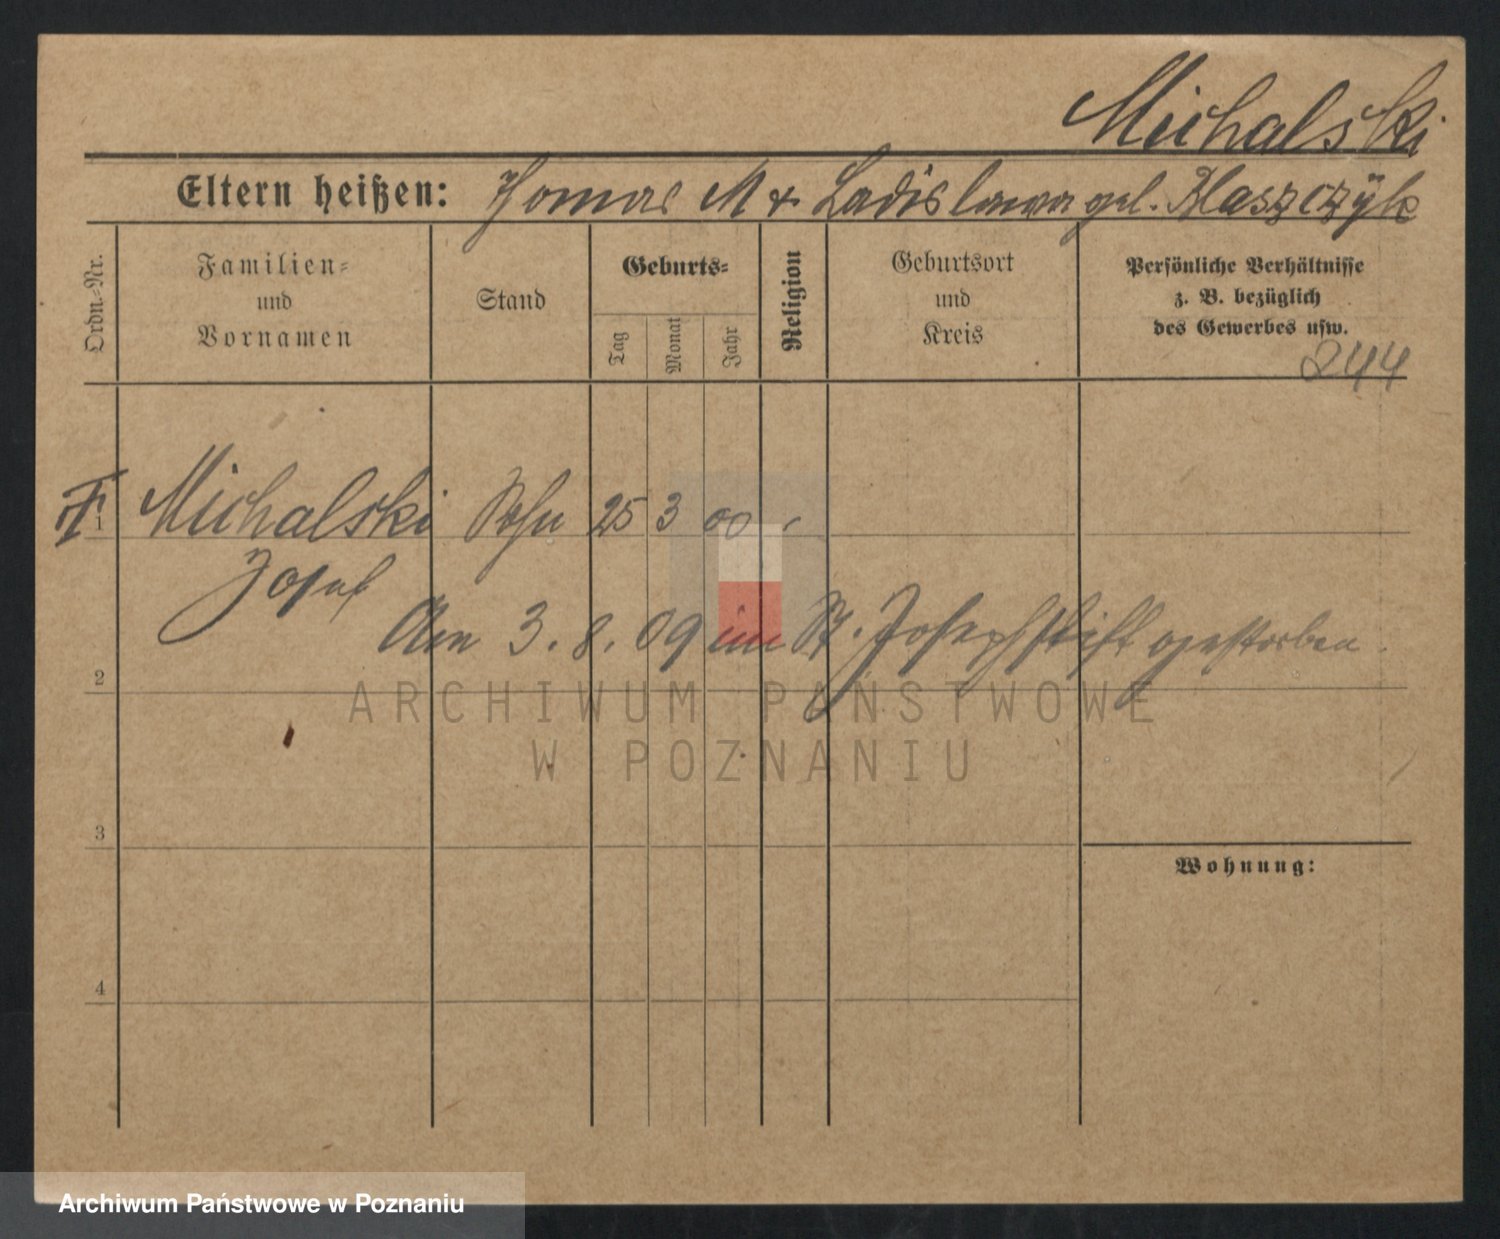 Michalski
Eltern heißen: Thomas M & Ladislawa geb. Blaszczÿk
Ordn-Nr.
Familien-
und
Vornamen
Stand
Geburts-
Tag
Monat
Jahr
Religion
Geburtsort
und
Kreis
Persönliche Verhältnisse
z. B. bezüglich
des Gewerbes usw.
244
1 Michalski Sohn 25 3 00
Josef
Am 3. 8. 09 im St. Josephstift gestorben.
2
ARCHIWUM PAŃSTWOWE
W POZNANIU
3
Wohnung:
4
Archiwum Państwowe w Poznaniu